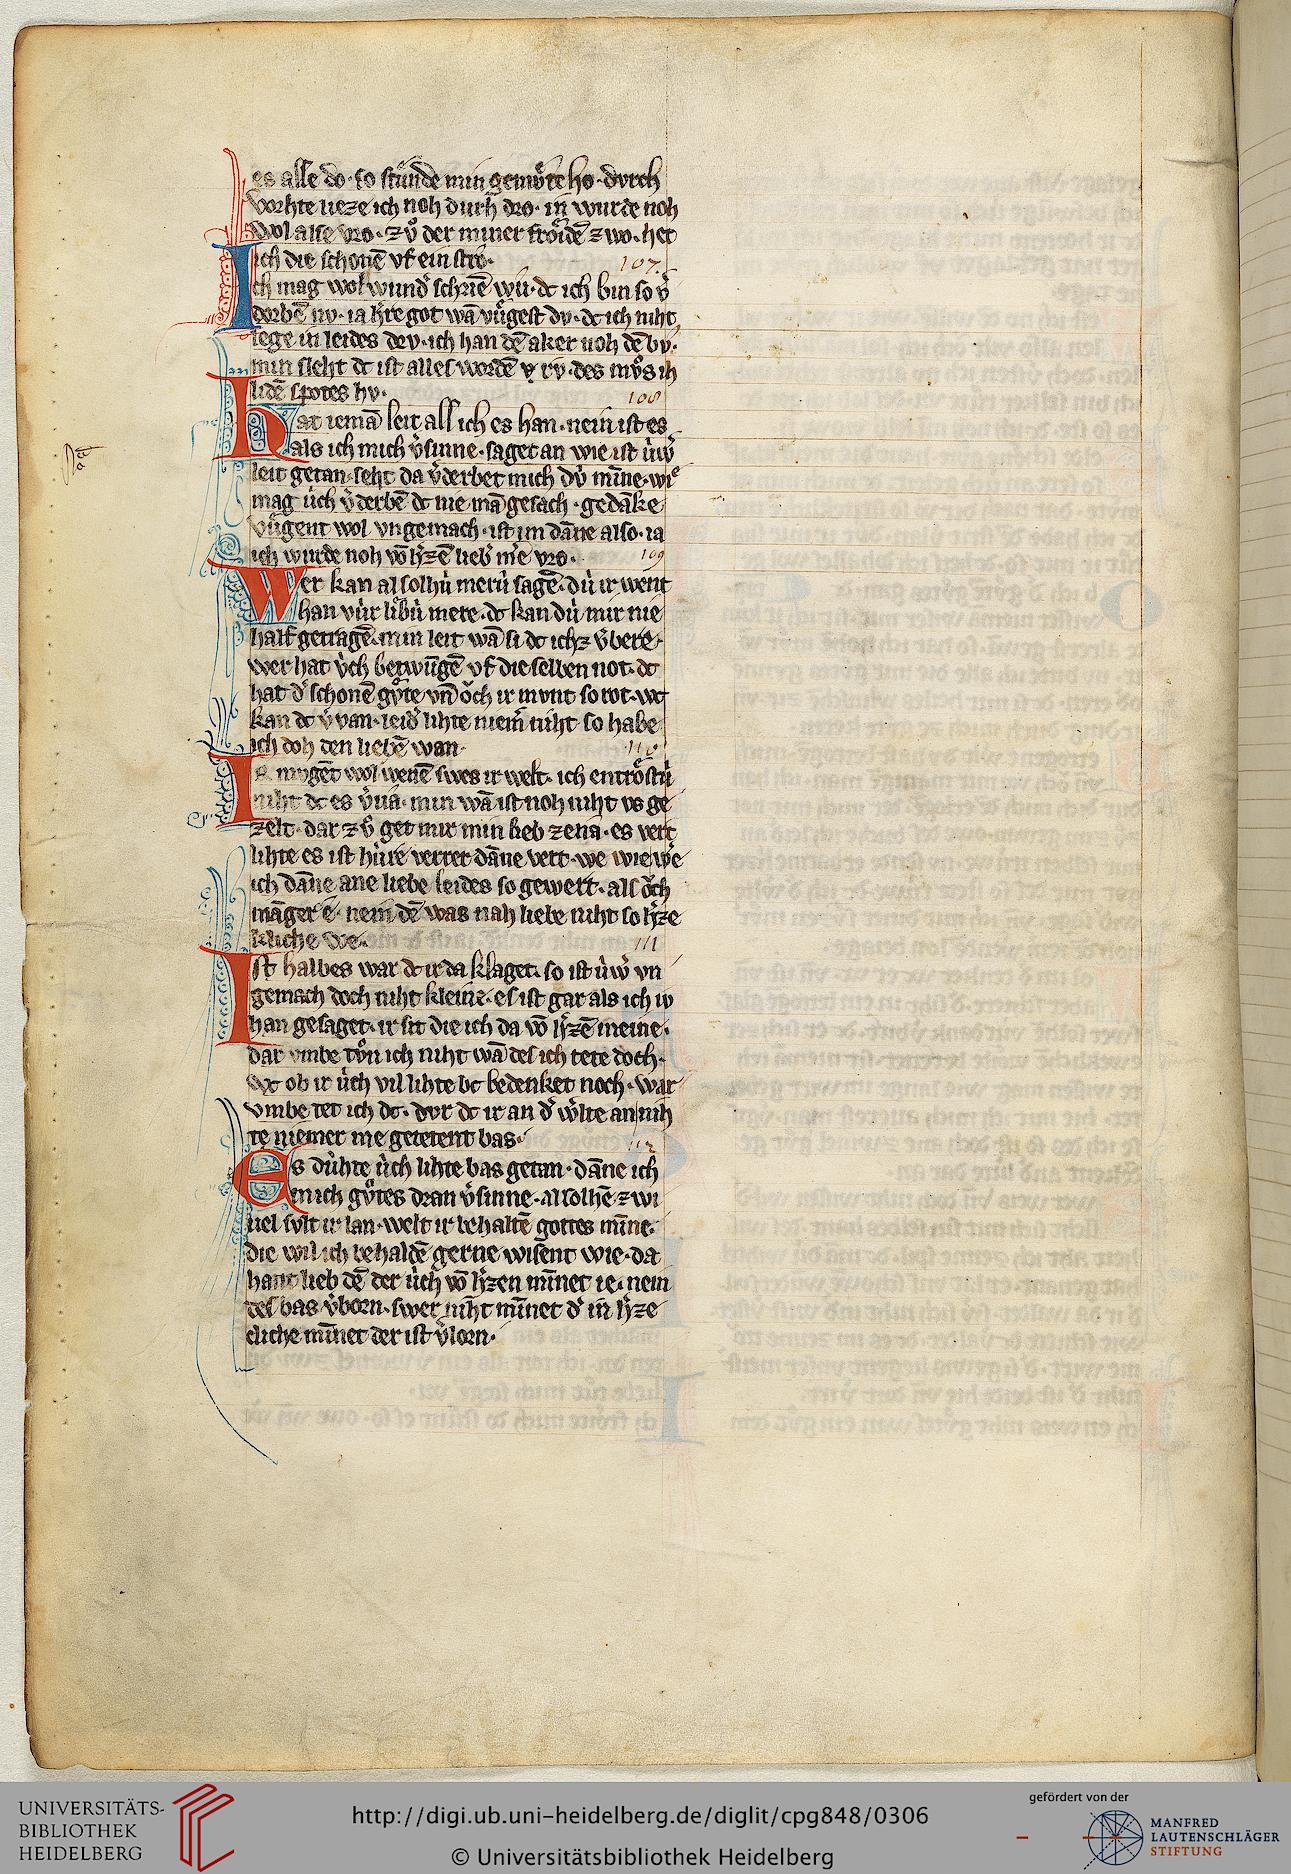 es alle do · so stuͦnde min gemuͤte ho · dvrch
vorhte lieze ich noh durh dro · in wurde noh
wol alse vro · zvͦ der miner froͤidē zwo · het
ich die schonē vf ein stro ·
107.
Ich mag wol wund͛ schriē wu · dc ich bin so v͛
dorbē nv · ia h͛re got wā vuͤgest dv · dc ich niht
lege in leides dry · ich han dē aker noh dē bv ·
min sleht dc ist alles wordē rv · des mvͦs ih
lidē spotes hv ·
108
Hat iemā leit als ich es han · nein ist es
als ich mich v͛sinne · saget an wie ist uͥw͛
leit getan · seht da v͛derbet mich dvͥ mīne · wie
mag uͥch v͛derbē dc nie mā gesach · gedāke
vuͤgent wol vngemach · ist im dāne also · ia
ich wurde noh vō h͛zē lieb͛ m͛e vro ·
109
Wer kan al solhuͥ meruͥ sagē · duͥ ir went
han vuͥr libuͥ mere · dc kan duͥ mir nie
half getragē · min leit wā si dc ichz v͛bere ·
wer hat vͥch betwūgē vf die selben not · dc
hat d͛ schonē guͤte vn̄ oͮch ir mvnt so rot · wc
kan dc v van · leid͛ lihte niem̄ niht so habe
ich doh den liebē wan ·
110
Ir mugēt wol wenē swes ir welt · ich entroͤstuͥ
niht dc es v͛va · min wā ist noh niht vs ge
zelt · dar zvͦ get mir min lieb zena · es vert
lihte es ist huͥre verrer dāne vert · we wie w͛e
ich dāne ane liebe leides so gewert · als oͮch
māger e · nein dē was nah liebe niht so h͛ze
kliche we ·
111
Ist halbes war dc ir da klaget · so ist uͥw͛ vn
gemach doch niht kleine · es ist gar als ich iv
han gesaget · ir sit die ich da vō h͛zē meine ·
dar vmbe tvͦn ich niht wā des ich tete doch ·
wc ob ir uͥch vil lihte bc bedenket noch · war
vmbe tet ich dc · dvr dc ir an d͛ w͛lte an nih
te niemer me getetent bas ·
112
Es duͥhte uͥch lihte bas getan · dāne ich
mich guͦtes dran v͛sinne · al solhē zwi
uel svlt ir lan · welt ir behaltē gottes mīne ·
die wil ich behaldē gerne wisent wie · da
hant lieb dē der uͥch vō h͛zen mīnet ie · nein
des bas v͛born · swer niht mīnet d͛ in h͛ze
cliche mīnet der ist v͛lorn ·
UNIVERSITÄTS-
BIBLIOTHEK
HEIDELBERG
http://digi.ub.uni-heidelberg.de/diglit/cpg848/0306
© Universitätsbibliothek Heidelberg
gefördert von der
MANFRED
LAUTENSCHLÄGER
STIFTUNG